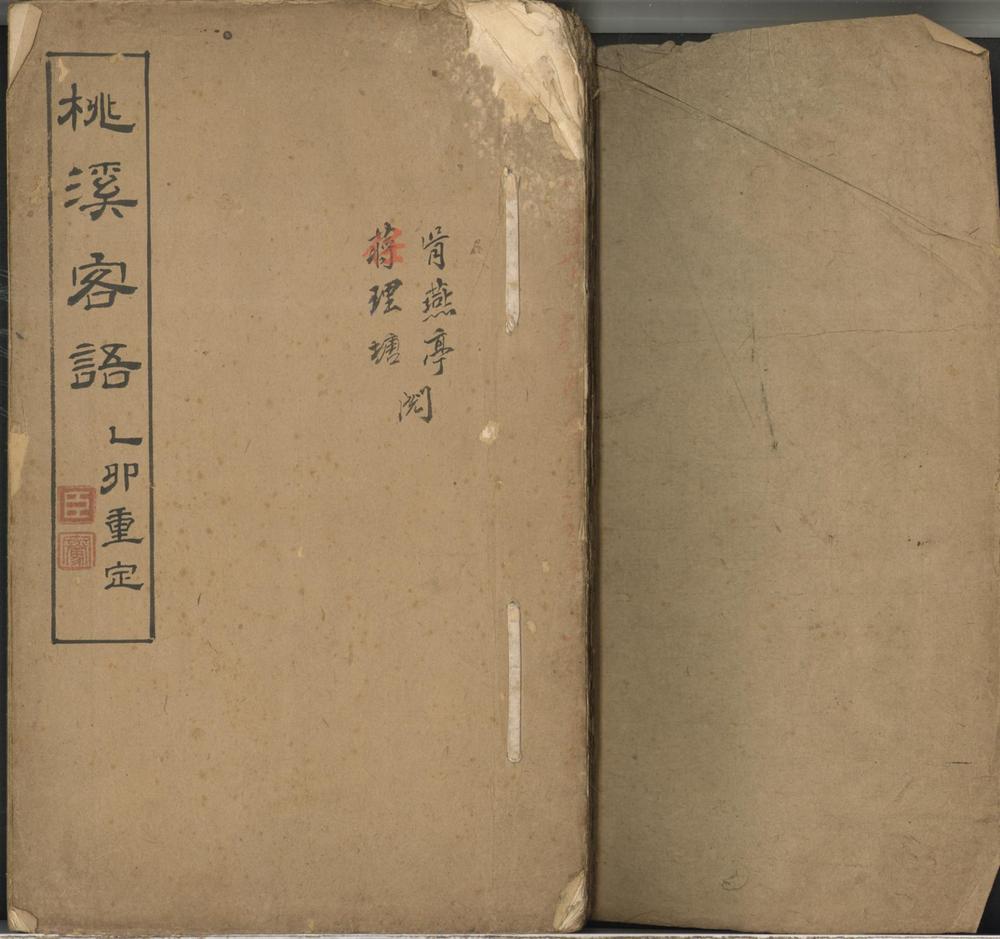 胥燕亭
蔣理塘
閱
桃溪客語
乙卯重定
臣
騫